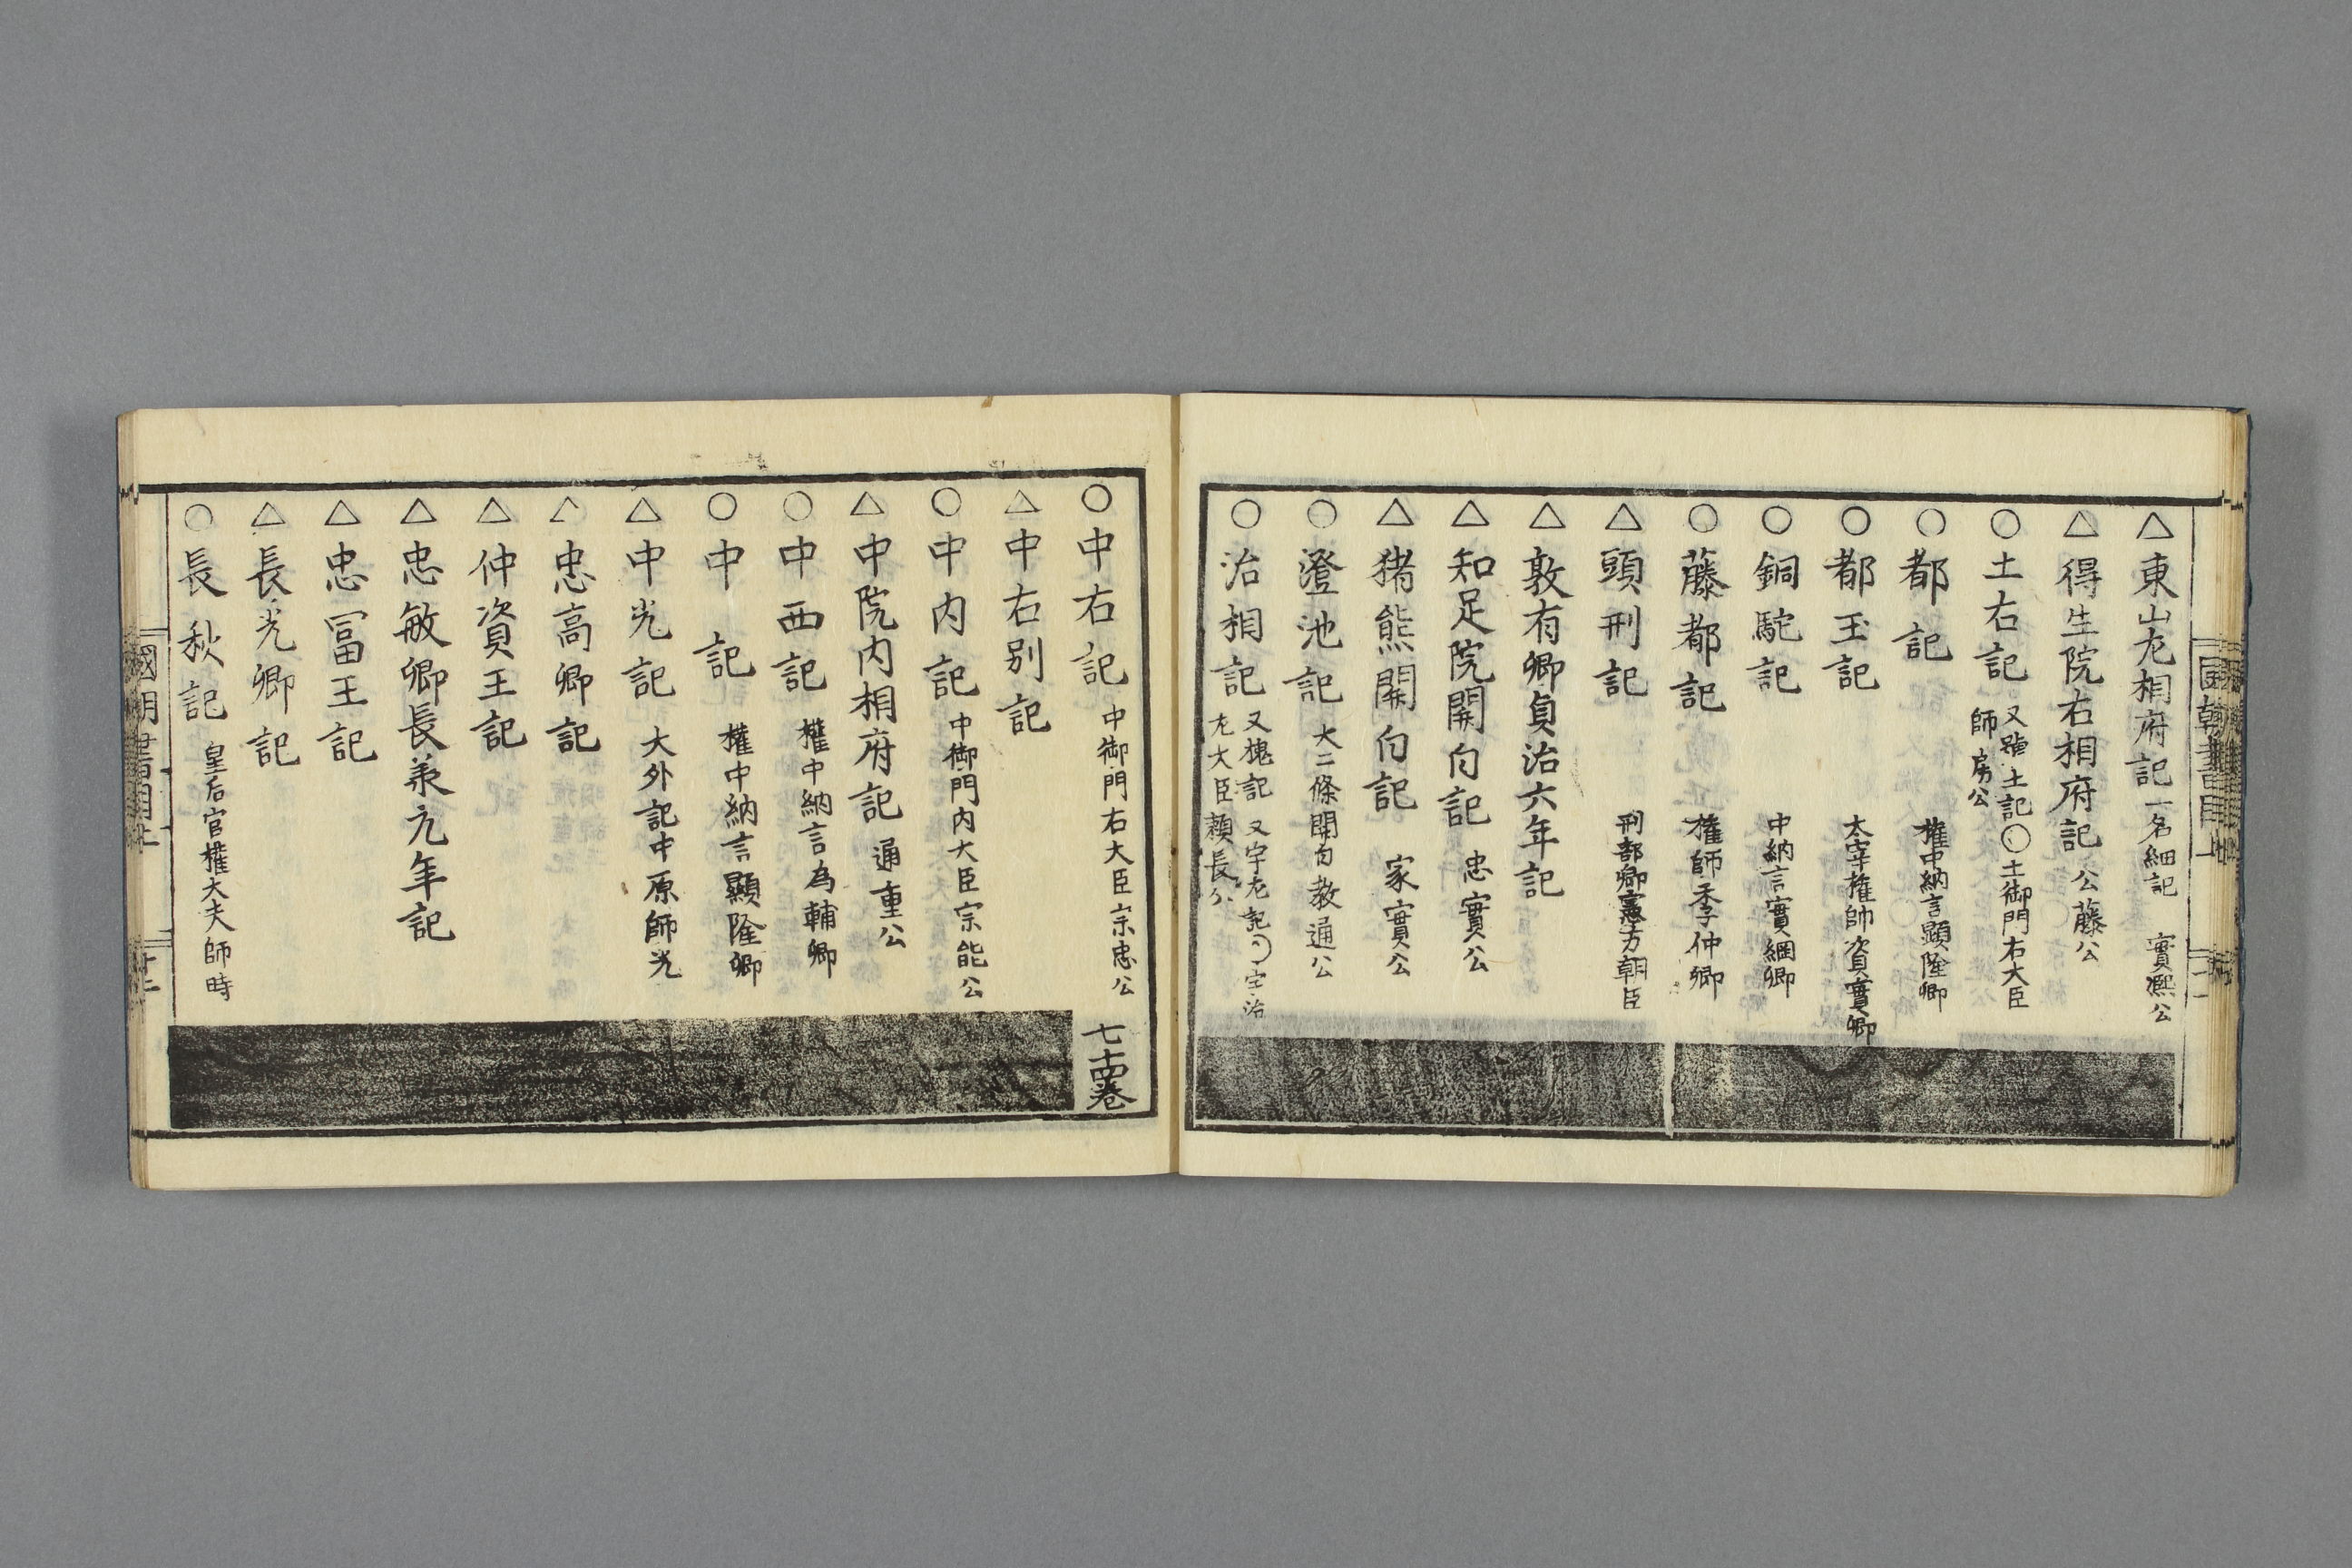 △東山左相府記 一名細記 實熈公
△得生院右相府記 公藤公
○土右記 又 土記○土御門右大臣
師房公
○都記 權中納言顯隆卿
○都玉記 太宰權帥資實卿
○銅駝記 中納言實綱卿
○藤都記 權師季仲卿
△頭刑記 刑部卿憲方朝臣
△敦有卿貞治六年記
△知足院関白記 忠實公
△猪熊関白記 家實公
○澄池記 大二條関白教通公
○治相記 又槐記 又宇左記○宇治
左大臣頼長公
○中右記 中御門右大臣宗忠公 七十四卷
△中右別記
○中内記 中御門内大臣宗能公
△中院内相府記 通重公
○中西記 權中納言為輔卿
○中記 權中納言顯隆卿
△中光記 大外記中原師光
△忠高卿記
△仲資王記
△忠敏卿長兼元年記
△忠冨王記
△長光卿記
○長秋記 皇后官權大夫師時
國朝書目上